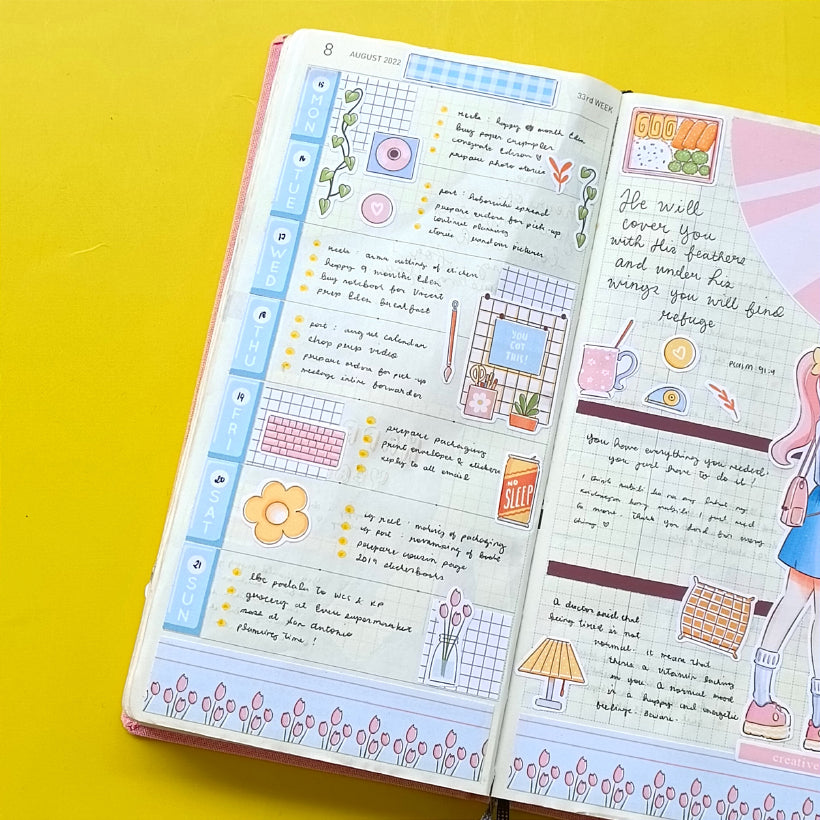 8 AUGUST 2022
33rd WEEK
15 MON
reels : happy 9 month Eden
buy paper crumpler
congrats Edison
prepare photo stories
16 TUE
post : hobonichi spread
prepare orders for pick-up
continue planning
stories :
17 WED
reels :
happy 9 months Eden
buy notebook for
prep Eden breakfast
YOU
GOT
THIS!
18 THU
post : august calendar
shop prep video
prepare orders for pick up
message inline forwarder
19 FRI
prepare packaging
print envelopes & stickers
reply to all email
NO
SLEEP
20 SAT
ig reel : making of packaging
ig post : revamping of books
prepare cousin page
2019 stickerbooks
21 SUN
to WCI & KP
grocery at supermarket
mass at San Antonio
planning time !
He will
cover you
with His feathers
and under his
wings you will find
refuge
PSALM 91:4
you have everything you needed
you just have to do it!
A doctor said that
being tired is not
normal. it means that
there a vitamin lacking
in you. A normal mood
is a happy and energetic
feelings. Beware.
creative